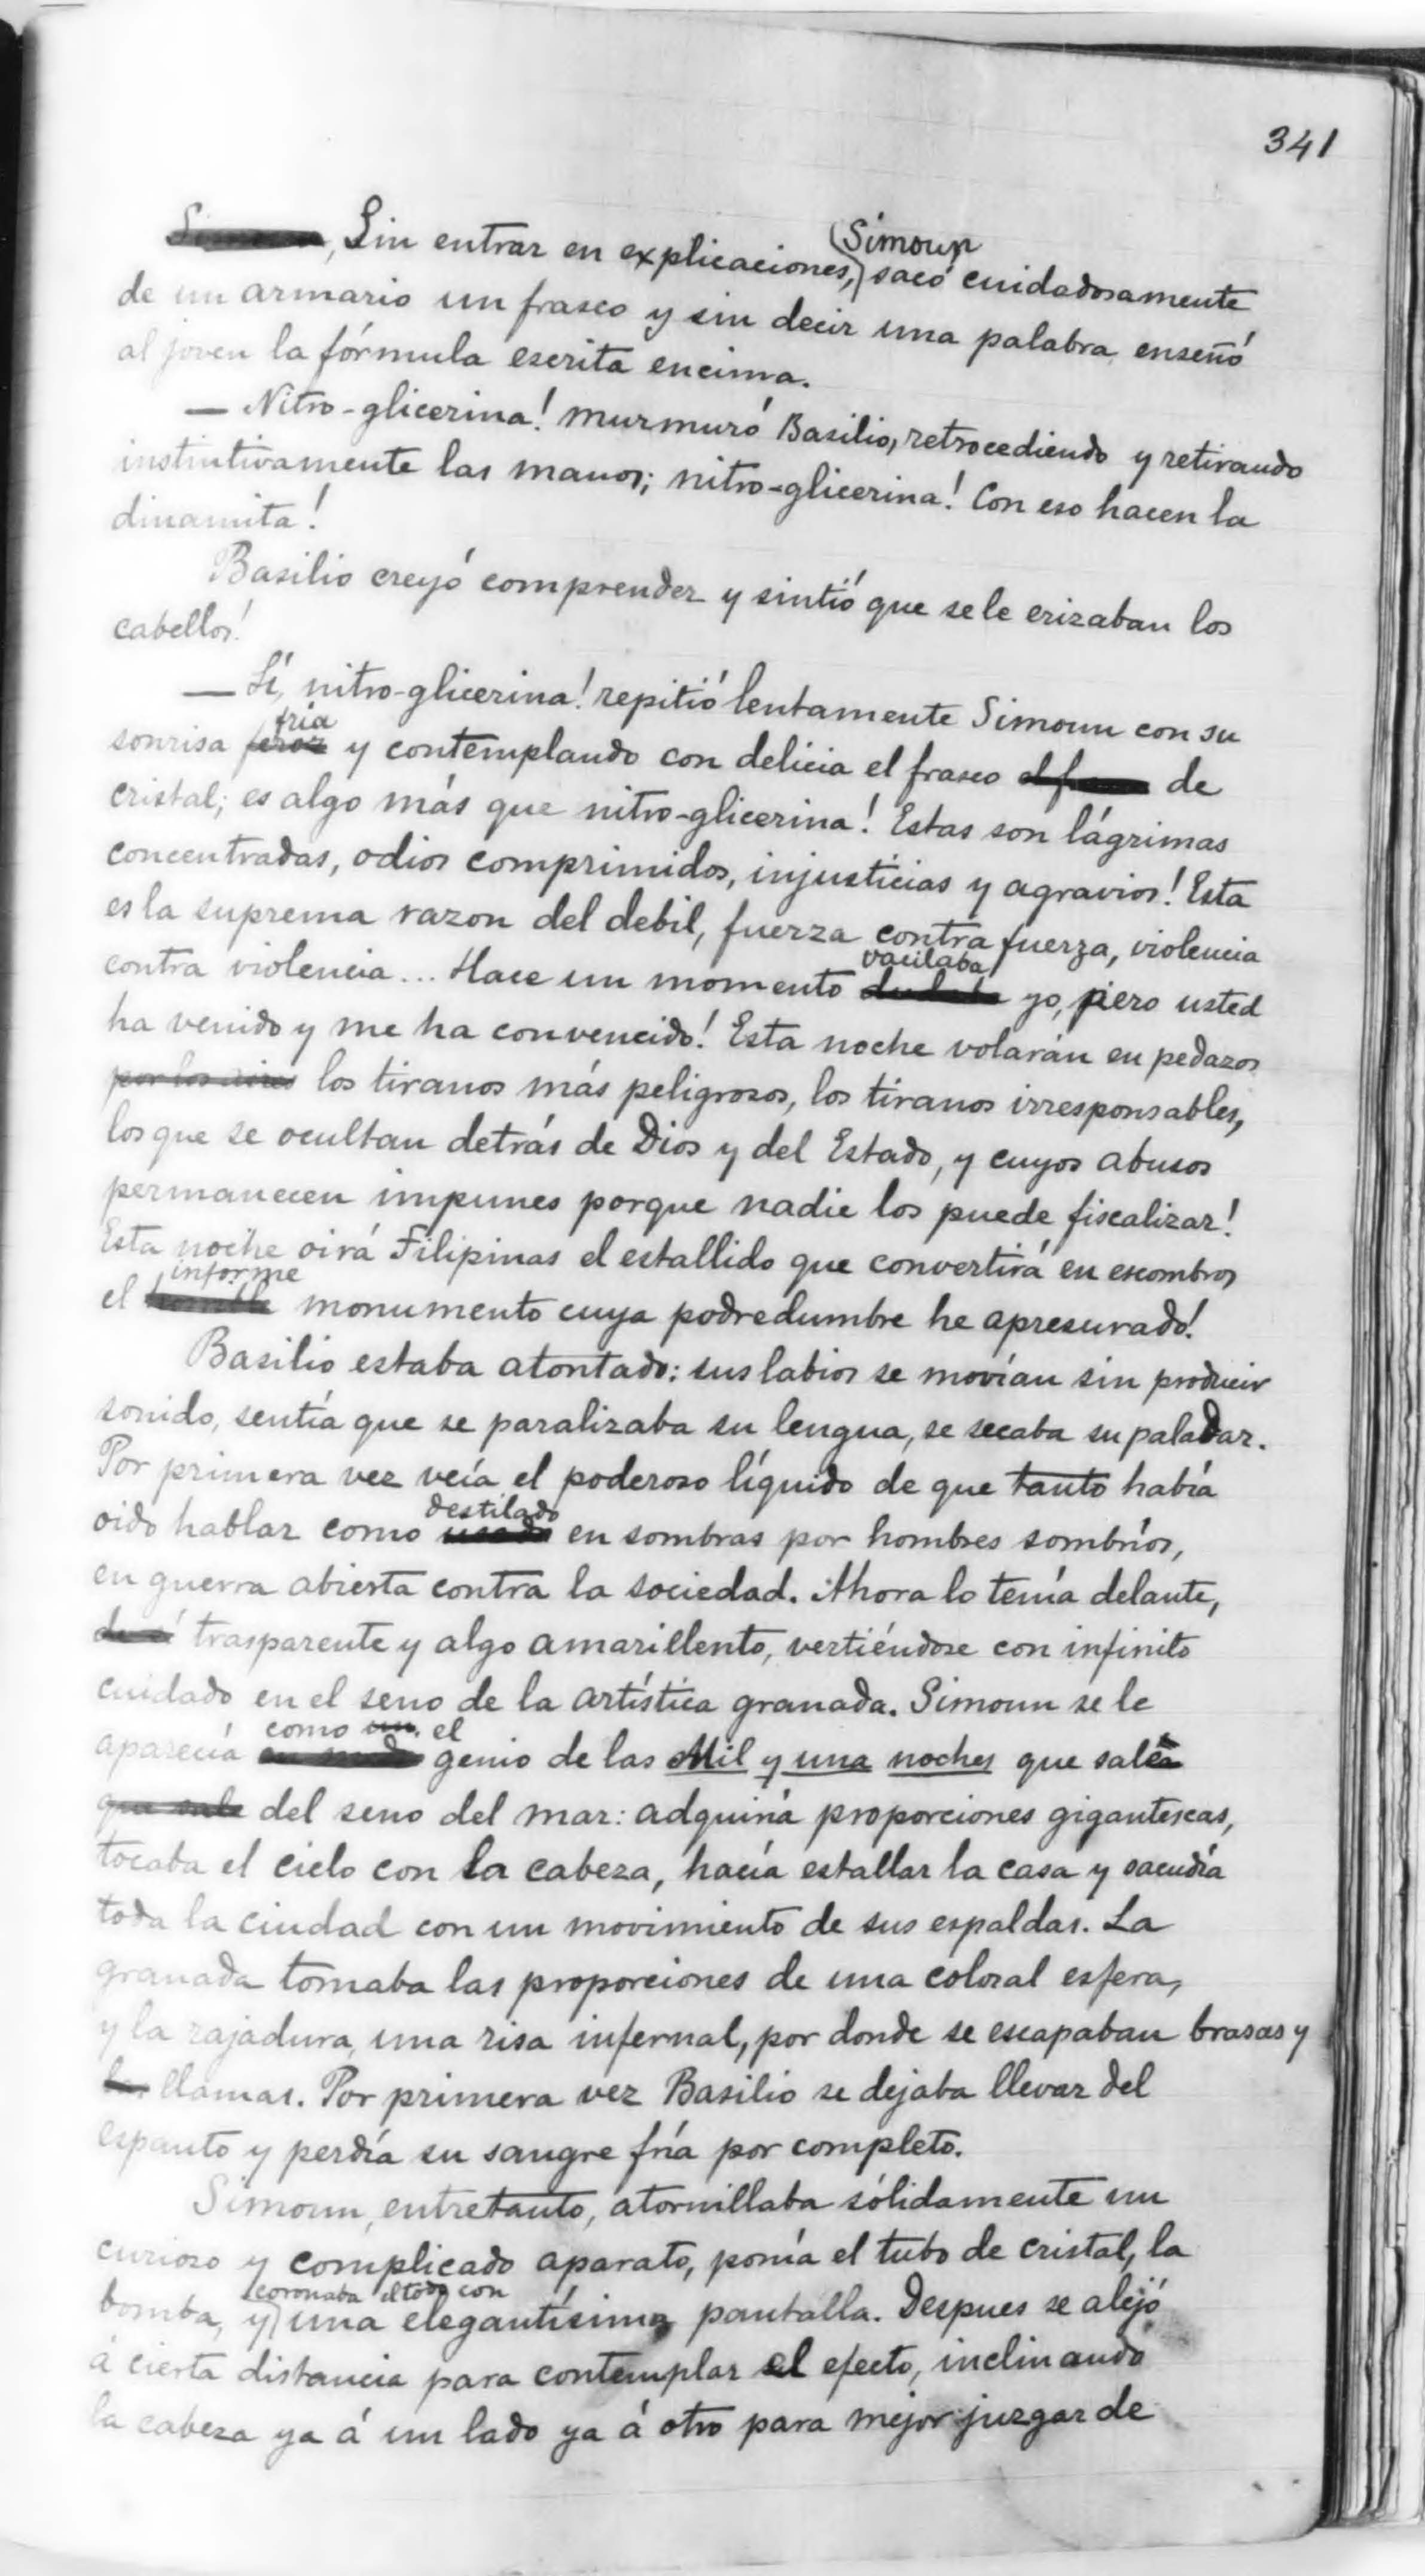 341
Sin entrar en explicaciones, Simoun sacó cuidadosamente
de un armario un frasco y sin decir una palabra enseñó
al joven la fórmula escrita encima.
— Nitro-glicerina! murmuró Basilio, retrocediendo y retirando
instintivamente las manos; nitro-glicerina! Con eso hacen la
dinamita!
Basilio creyó comprender y sintió que se le erizaban los
cabellos!
— Sí, nitro-glicerina! repitió lentamente Simoun con su
sonrisa feroz fría y contemplando con delicia el frasco de
cristal; es algo más que nitro-glicerina! Estas son lágrimas
concentradas, odios comprimidos, injusticias y agravios! Esta
es la suprema razon del debil, fuerza contra fuerza, violencia
contra violencia... Hace un momento dudaba vacilaba yo, pero usted
ha venido y me ha convencido! Esta noche volarán en pedazos
por los aires los tiranos más peligrosos, los tiranos irresponsables,
los que se ocultan detrás de Dios y del Estado, y cuyos abusos
permanecen impunes porque nadie los puede fiscalizar!
Esta noche oirá Filipinas el estallido que convertirá en escombros
el informe monumento cuya podredumbre he apresurado!
Basilio estaba atontado: sus labios se movían sin producir
sonido, sentía que se paralizaba su lengua, se secaba su paladar.
Por primera vez veía el poderoso líquido de que tanto había
oido hablar como destilado en sombras por hombres sombríos,
en guerra abierta contra la sociedad. Ahora lo tenía delante,
trasparente y algo amarillento, vertiéndose con infinito
cuidado en el seno de la artística granada. Simoun se le
aparecía como un el genio de las Mil y una noches que salía
que sale del seno del mar: adquiría proporciones gigantescas,
tocaba el cielo con la cabeza, hacía estallar la casa y sacudía
toda la ciudad con un movimiento de sus espaldas. La
granada tomaba las proporciones de una colosal esfera,
y la rajadura, una risa infernal, por donde se escapaban brasas y
llamas. Por primera vez Basilio se dejaba llevar del
espanto y perdía su sangre fría por completo.
Simoun, entretanto, atornillaba sólidamente un
curioso y complicado aparato, ponía el tubo de cristal, la
bomba, y coronaba el todo con una elegantísima pantalla. Despues se alejó
á cierta distancia para contemplar el efecto, inclinando
la cabeza ya á un lado ya á otro para mejor juzgar de